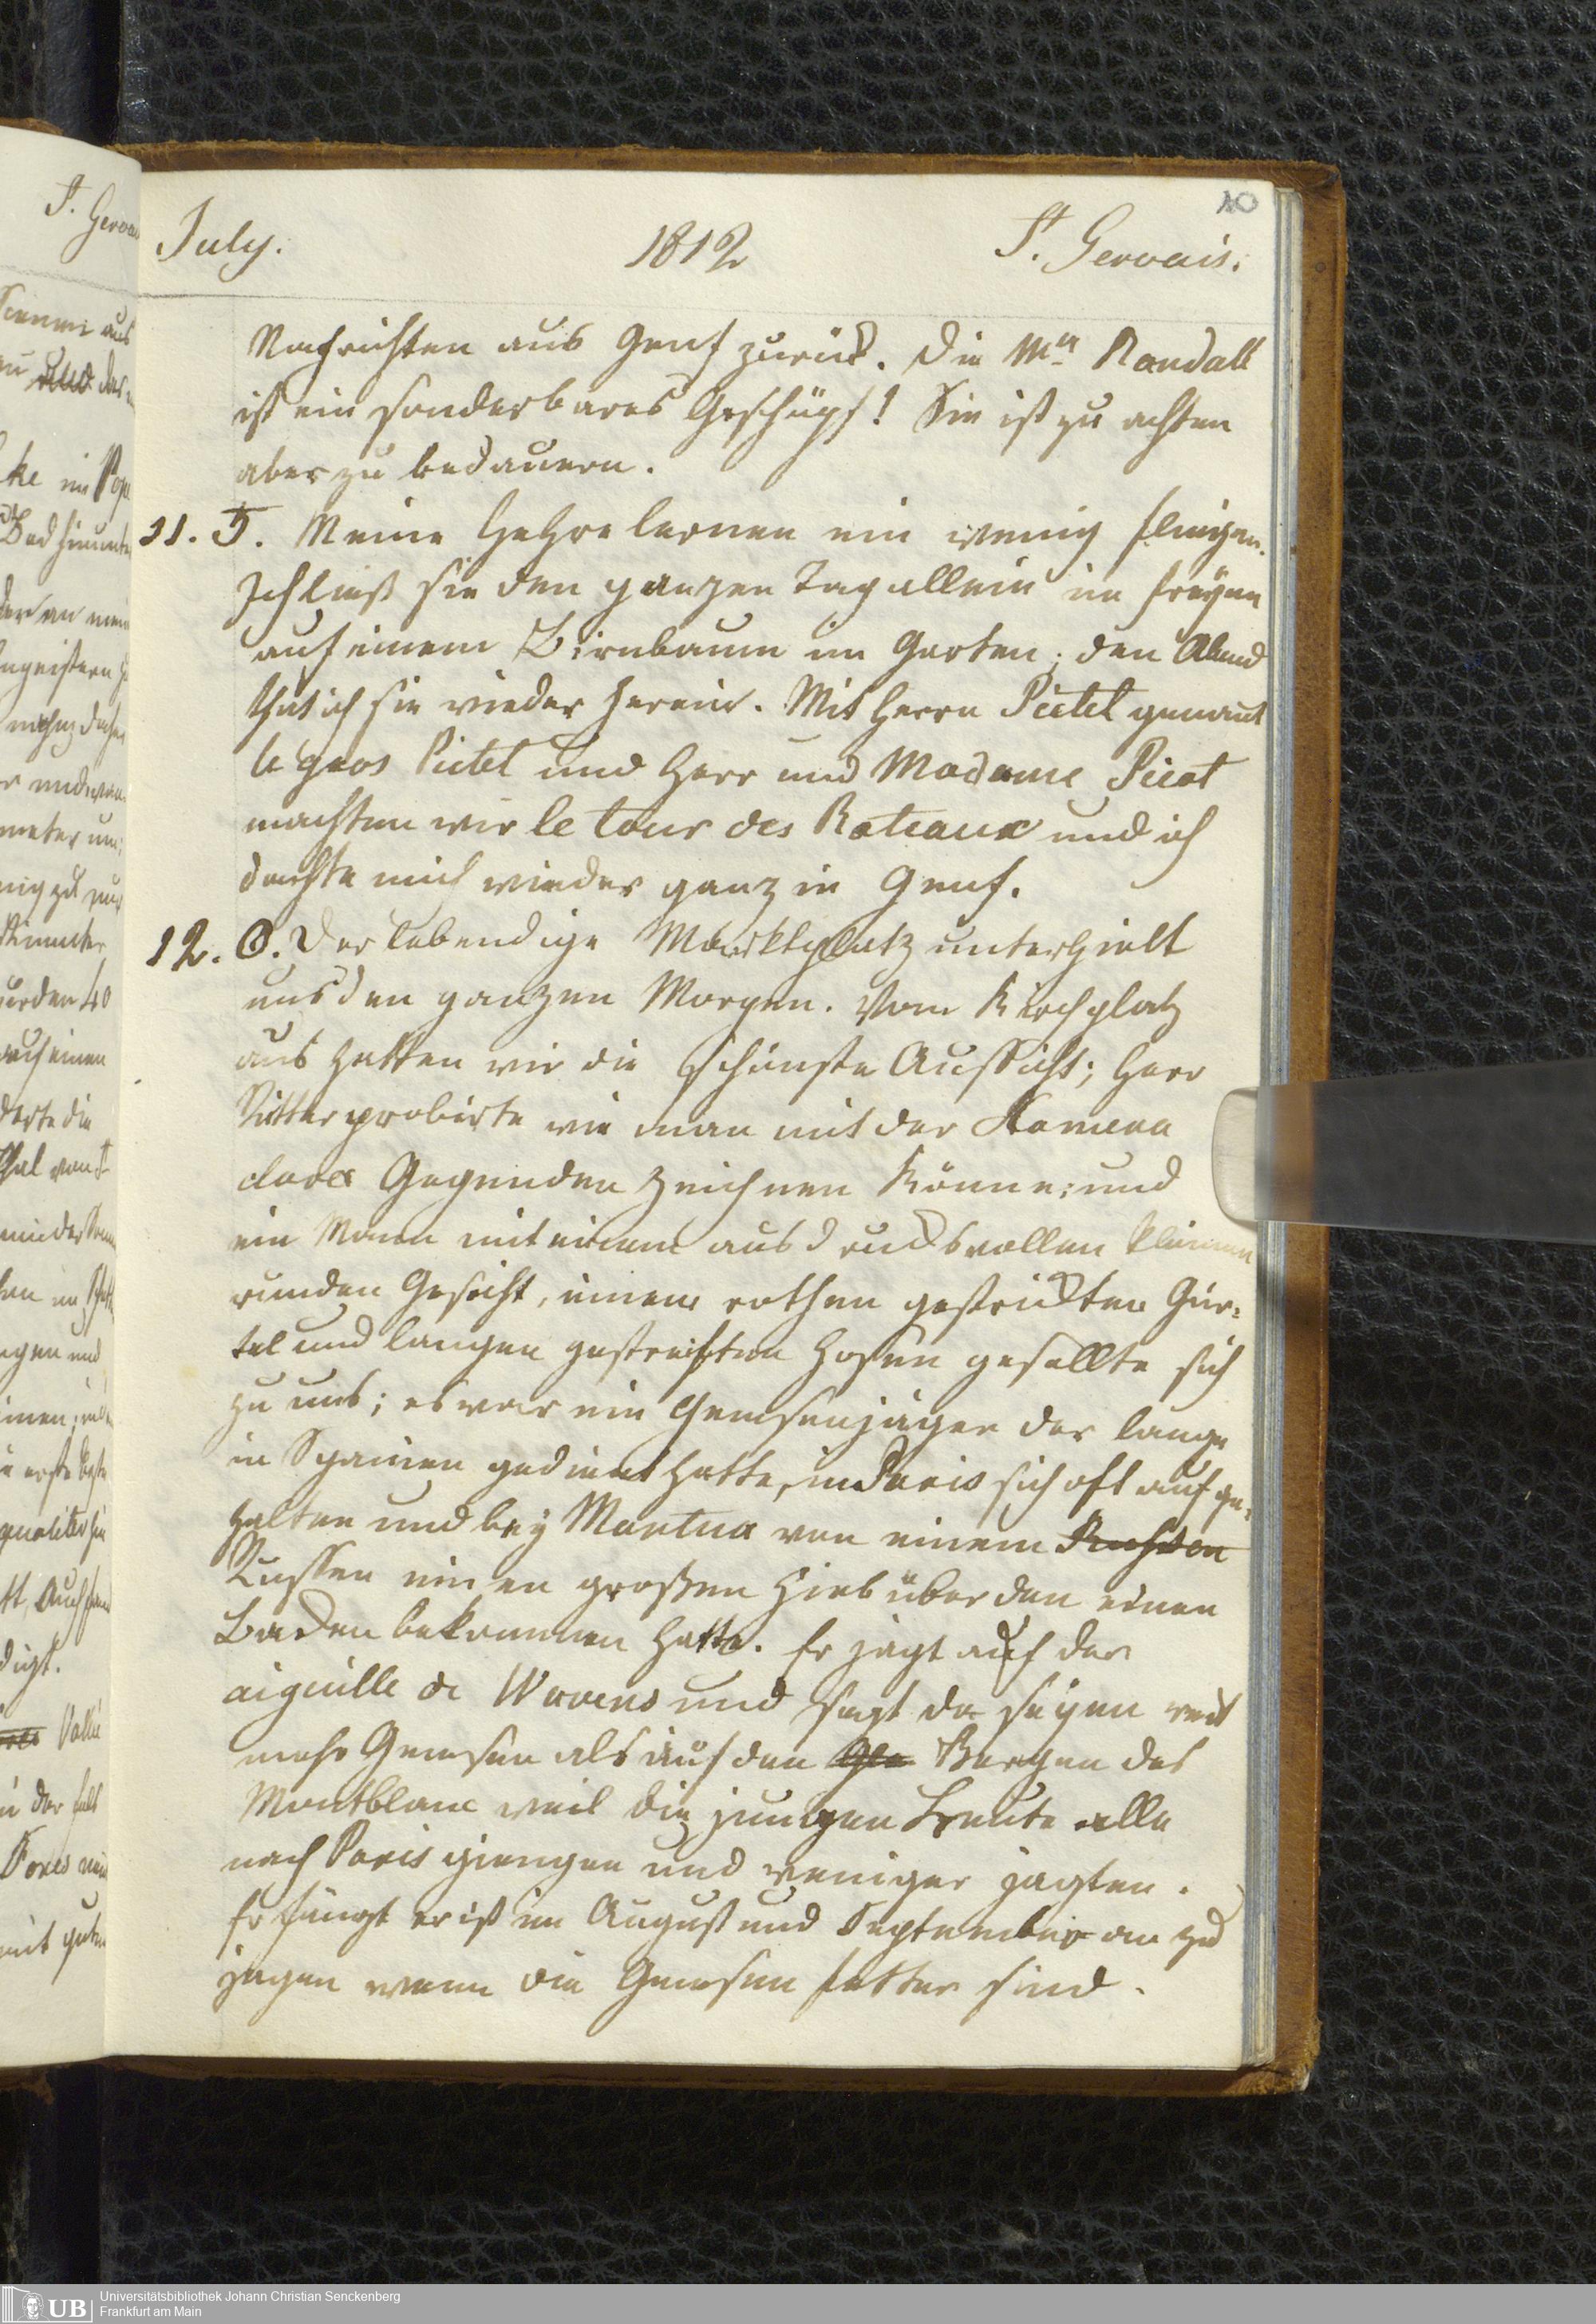 10
July.
1812
St. Gervais.
Nachrichten aus Genf zurück. Die Mss Randall
ist ein sonderbares Geschöpf! Sie ist zu achten
aber zu bedauern.
11. ♄. Meine Hehre lernen ein wenig fliegen.
Ich ließ sie den ganzen Tag allein im freyen
auf einem Birnbaum im Garten; den Abend
that ich sie wieder herein. Mit Herrn Pictet genant
le gros Pictet und Herr und Madame Picot
machten wir le tour des Rateaux und ich
dachte mich wieder ganz in Genf.
12. ☉. Der lebendige Marktplatz unterhielt
uns den ganzen Morgen. Vom Kirchplatz
aus hatten wir die schönste Aussicht; Herr
Ritter probirte wie man mit der Kamera
clara Gegenden zeichnen könne; und
ein Mann mit einem ausdrucksvollen kleinen
runden Gesicht, einem rothen gestrickten Gür=
tel und langen gestreiften Hosen gesellte sich
zu uns; es war ein Gemsenjäger der lange
in Spanien gedient hatte, in Paris sich oft aufge=
halten und bey Mantua von einem Rußen
Russen einen großen Hieb über den einen
Backen bekommen hatte. Er jagt auf der
aiguille de Warens und sagt da seyen weit
mehr Gemsen als auf den Gle Bergen des
Montblanc weil die jungen Leute alle
nach Paris giengen und weniger jagten.
Er fängt erst im August und September an zu
jagen wenn die Gemsen fetter sind.
Universitätsbibliothek Johann Christian Senckenberg
Frankfurt am Main
UB